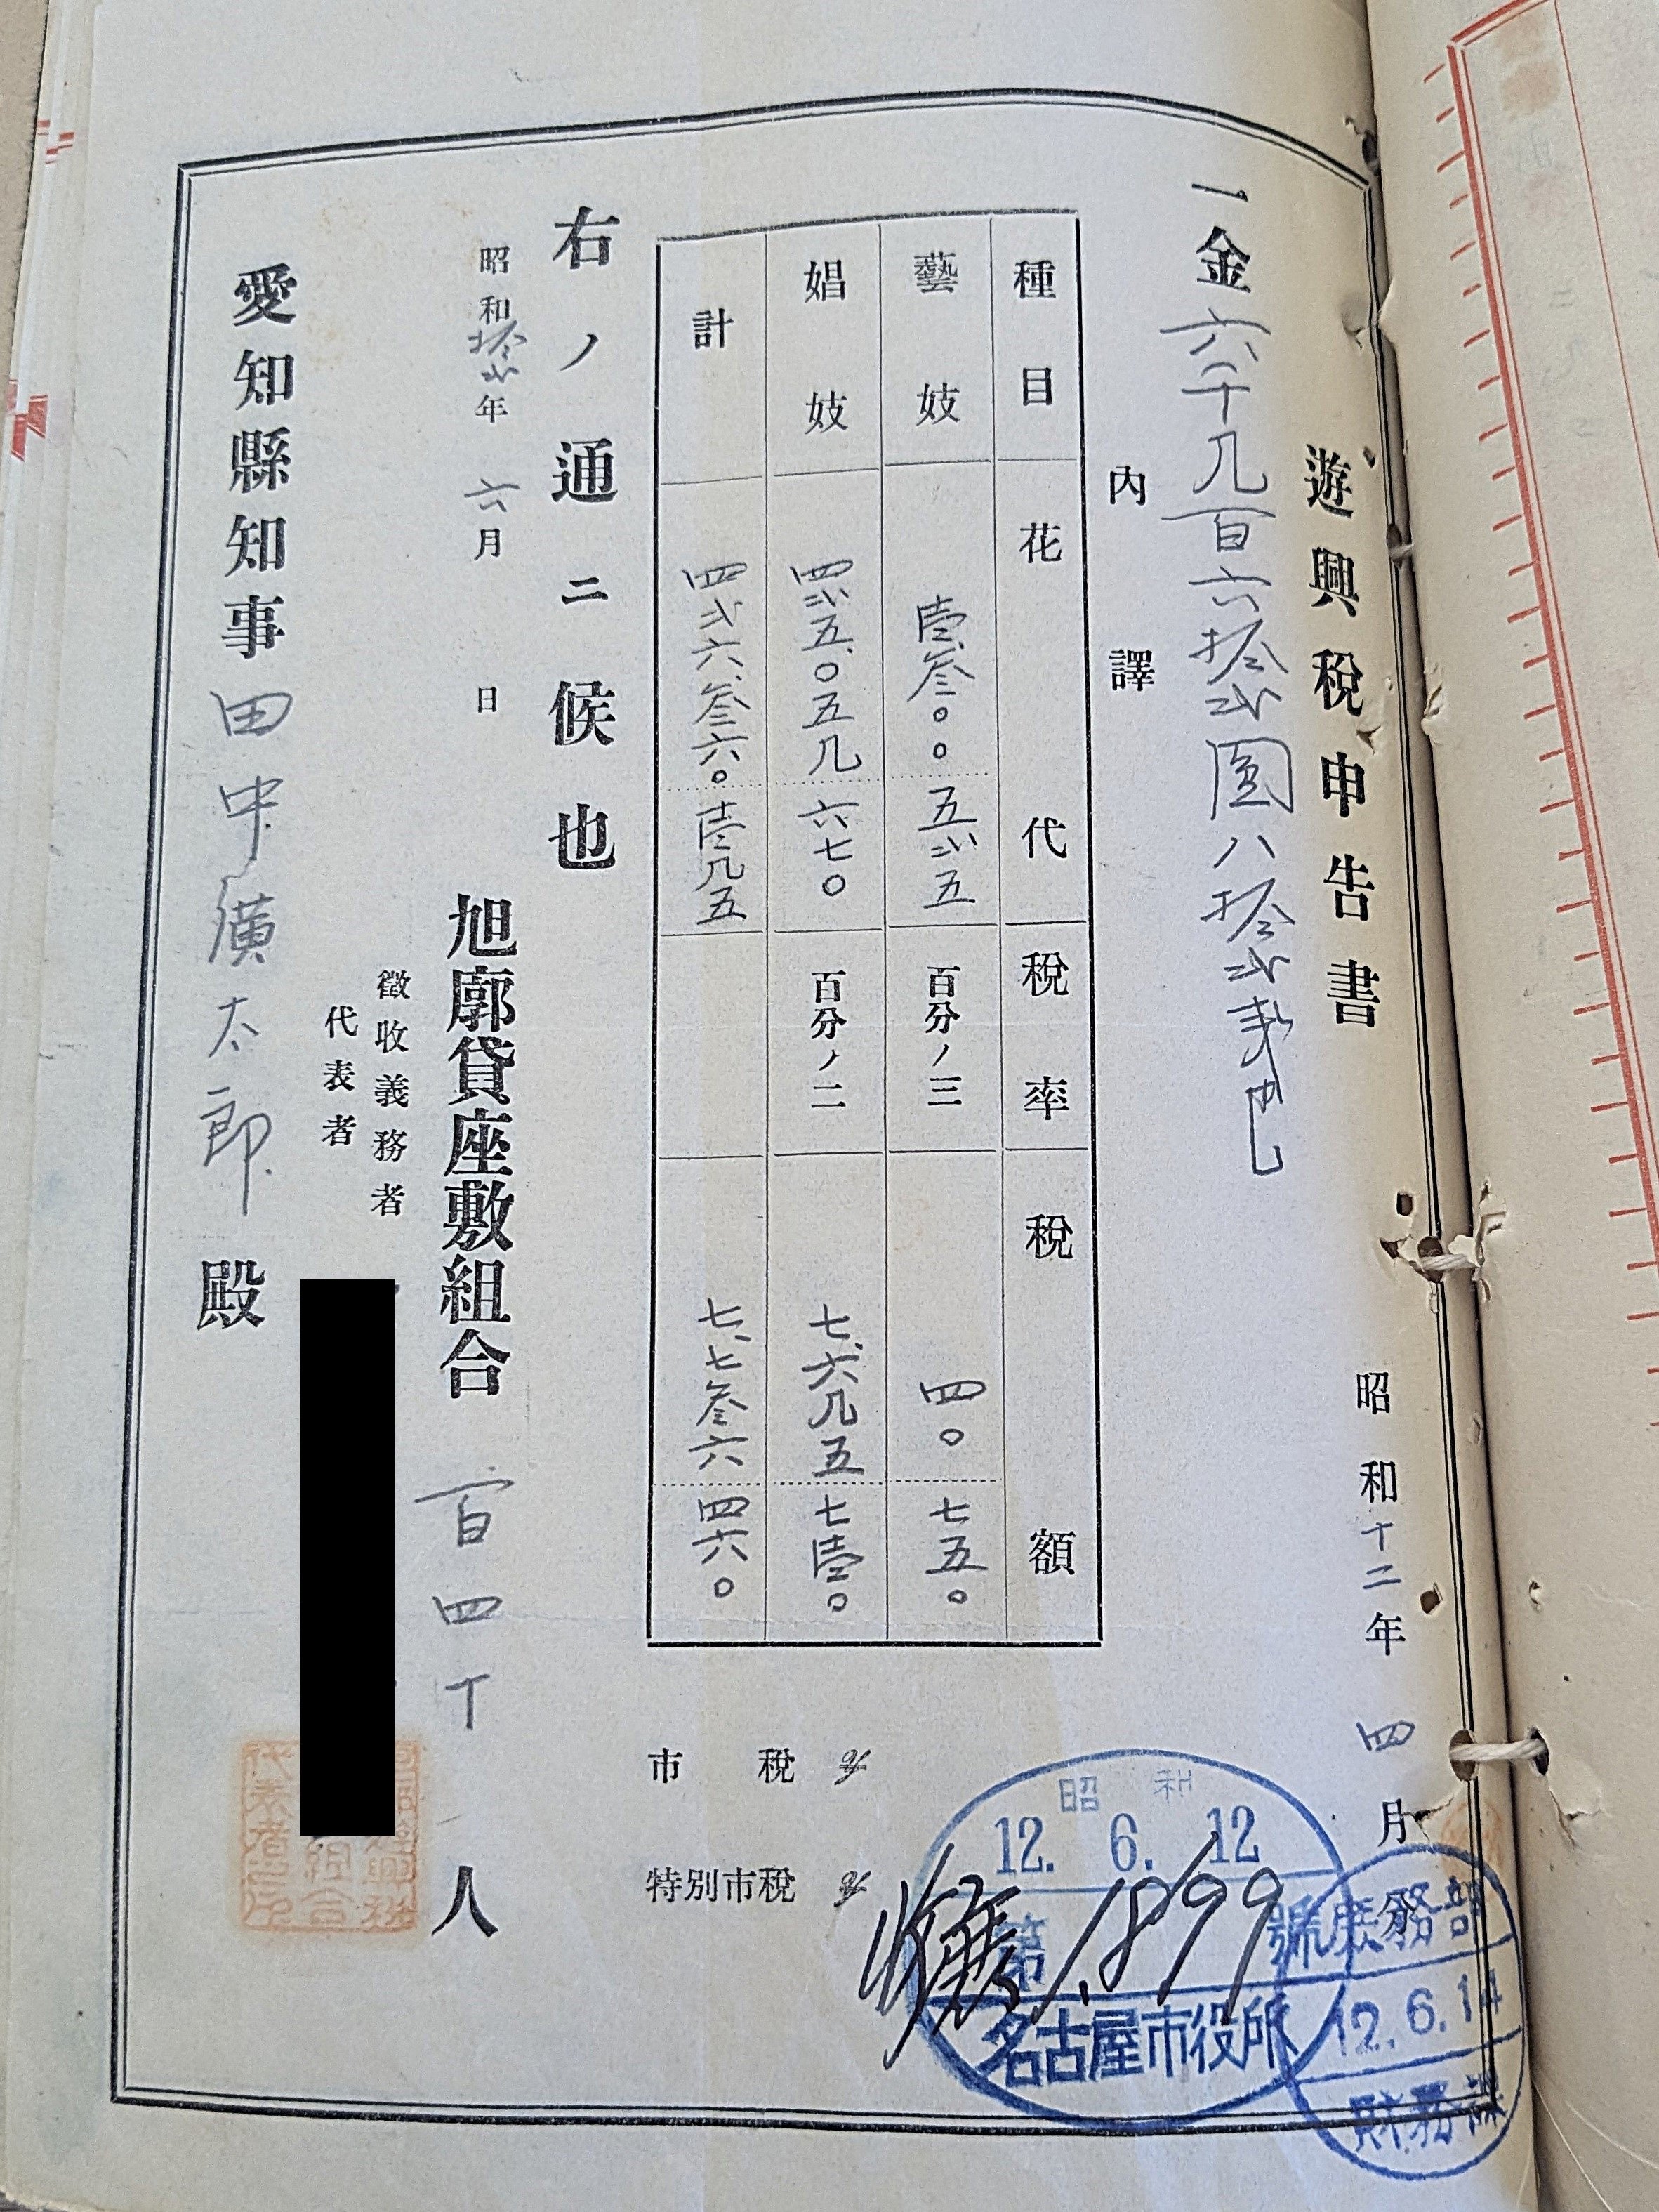 遊興稅申告書
昭和十二年四月分
一金六千九百六拾弐圓八拾弐銭也
內譯
種目 花代 稅率 稅額
藝妓 壱、参〇〇 五弐五 百分ノ三 四〇 七五〇
娼妓 四弐五、〇五九 六七〇 百分ノ二 七、六九五 七壱〇
計 四弐六、参六〇 壱九五 七、七参六 四六〇
市稅
特別市稅
右ノ通ニ候也
昭和拾弐年六月 日
旭廓貸座敷組合 百四十 人
徵收義務者
代表者
愛知縣知事田中廣太郎殿
昭和
12. 6. 12
第 1899 號
名古屋市役所
庶務部
12.6.14
財務課